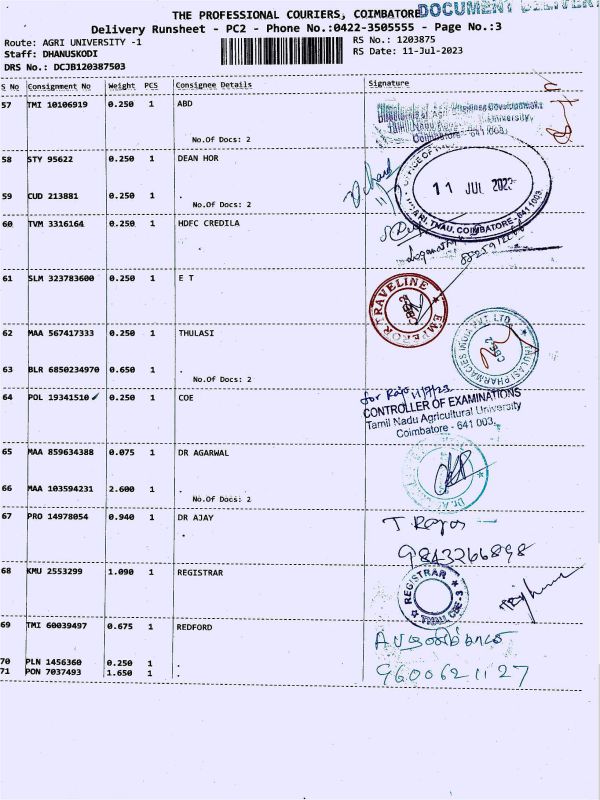 DOCUMENT DELIVERY
THE PROFESSIONAL COURIERS, COIMBATORE
Delivery Runsheet - PC2 - Phone No.:0422-3505555 - Page No.:3
Route: AGRI UNIVERSITY -1
RS No.: 1203875
Staff: DHANUSKODI
RS Date: 11-Jul-2023
DRS No.: DCJB120387503
S No Consignment No Weight PCS Consignee Details Signature
57 TMI 10106919 0.250 1 ABD
Tamil Nadu
University,
Coimbatore - 641 003.
No.Of Docs: 2
58 STY 95622 0.250 1 DEAN HOR
11 JUL 2023
59 CUD 213881 0.250 1 .
No.Of Docs: 2
60 TVM 3316164 0.250 1 HDFC CREDILA
TNAU, COIMBATORE - 641 003.
61 SLM 323783600 0.250 1 E T
EMPEROR TRAVELINE
CBE
62 MAA 567417333 0.250 1 THULASI
THULASI PHARMACIES INDIA PVT. LTD.
CBE-2
63 BLR 6850234970 0.650 1 .
No.Of Docs: 2
64 POL 19341510 ✓ 0.250 1 COE
for Raja 11/7/23
CONTROLLER OF EXAMINATIONS
Tamil Nadu Agricultural University
Coimbatore - 641 003.
65 MAA 859634388 0.075 1 DR AGARWAL
66 MAA 103594231 2.600 1 .
No.Of Docs: 2
67 PRO 14978054 0.940 1 DR AJAY
.
9843266898
68 KMU 2553299 1.090 1 REGISTRAR
REGISTRAR
TNAU, CBE-3
69 TMI 60039497 0.675 1 REDFORD
70 PLN 1456360 0.250 1 .
71 PON 7037493 1.650 1 .
9600621127